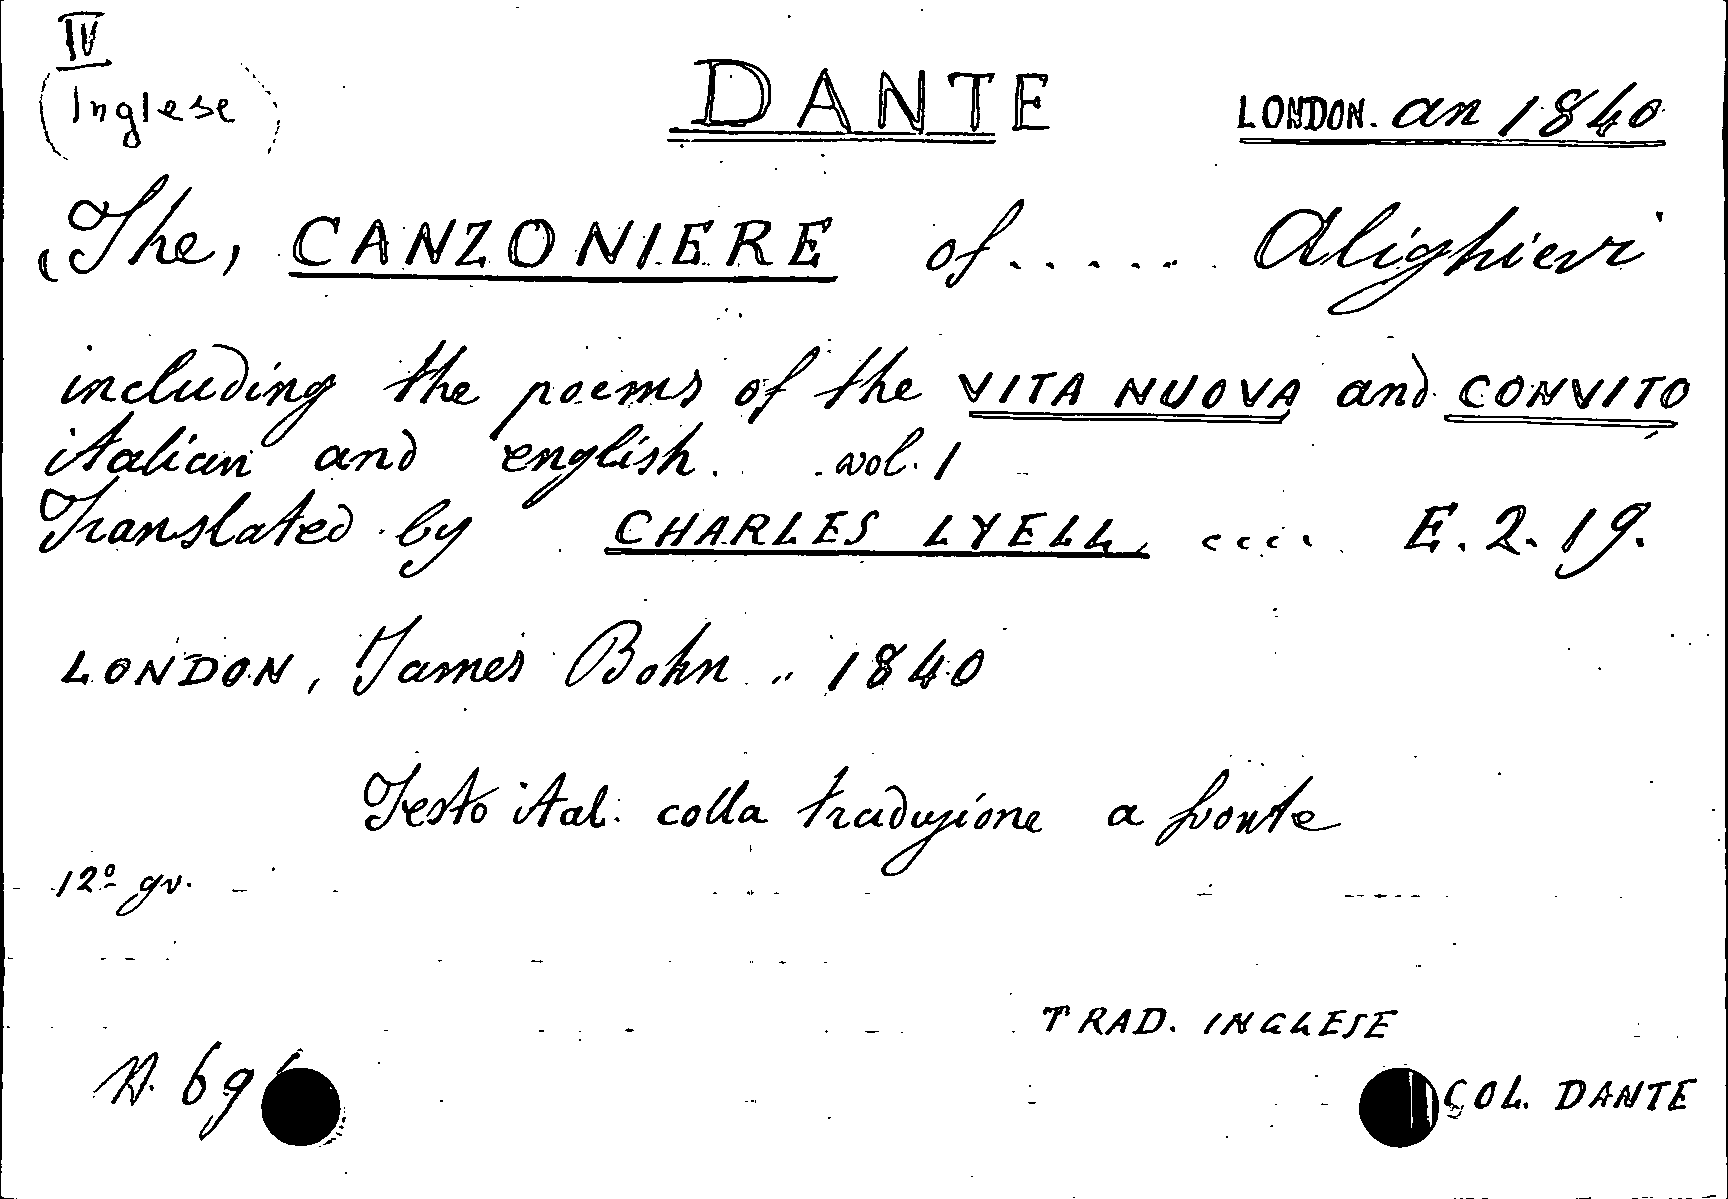 IV
(Inglese)
DANTE LONDON. an 1840
(The, CANZONIERE of...... Alighieri
including the poems of the VITA NUOVA and CONVITO
italian and english. vol. 1
Translated by CHARLES LYELL, .... E. 2. 19.
LONDON, James Bohn .. 1840
Testo ital. colla traduzione a fronte
12º gr.
TRAD. INGLESE
N. 69
COL. DANTE